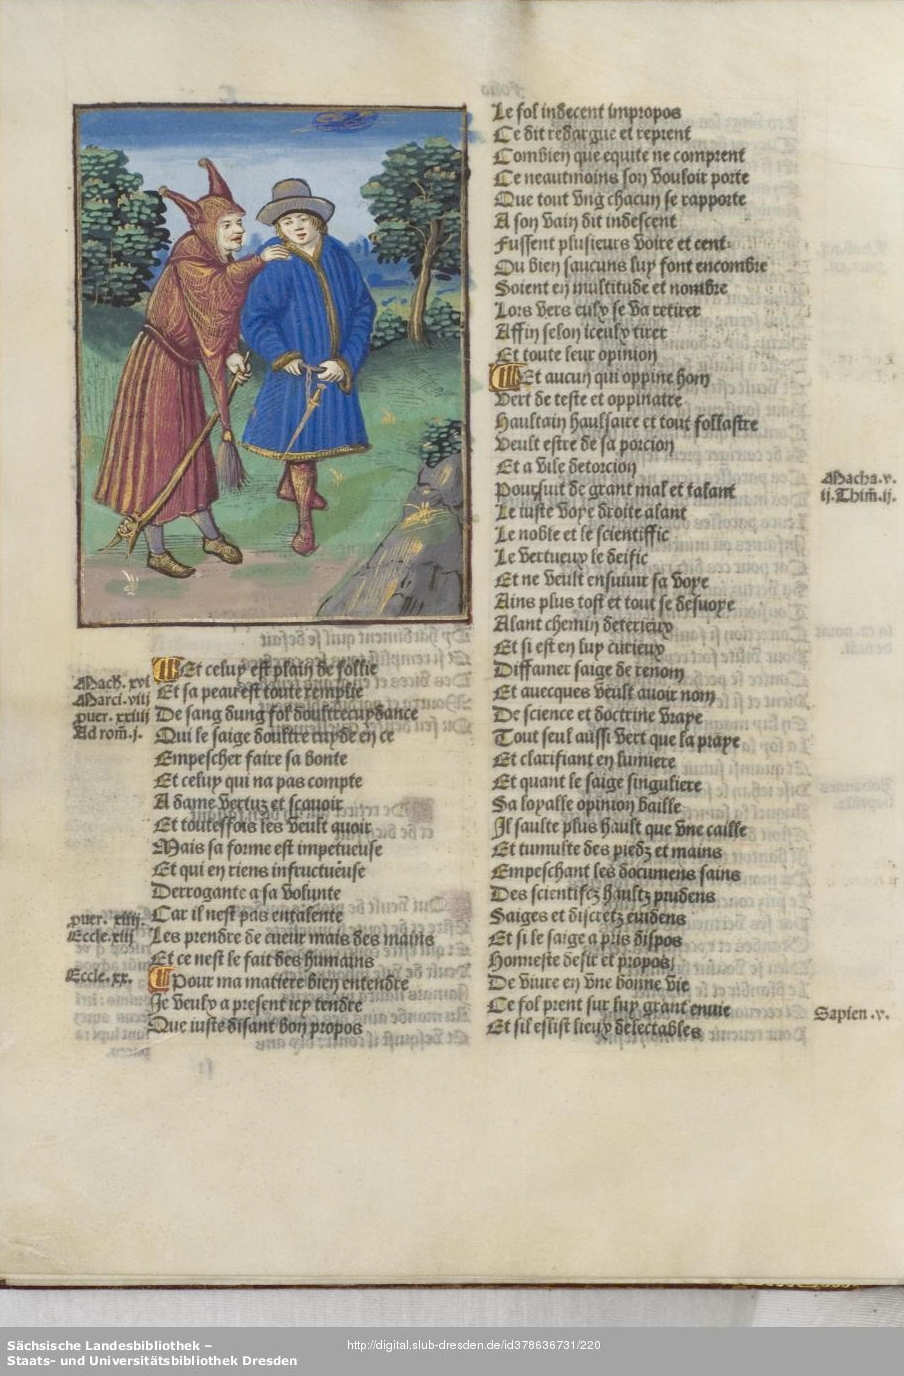 Et celuy est plain de follie
Et sa peau est toute remplie
De sang dung fol doultrecuydance
Qui le saige doultre cuyde en ce
Empescher faire sa bonte
Et celuy qui na pas compte
A dame vertuz et scauoir
Et toutesfois les veult auoir
Mais sa forme est impetueuse
Et qui en riens infructueuse
Derrogante a sa volunte
Car il nest pas entalente
Les prendre de cueur mais des mains
Et ce nest le fait des humains
Pour ma matiere bien entendre
Je veulx a present icy tendre
Que iuste disant bon propos
Mach. xvi
Marci. viij
puer. xxiiij
Ad rom. j.
puer. xiiij.
Eccle. xiij
Eccle. xx.
Le fol indecent impropos
Ce dit redargue et reprent
Combien que equite ne comprent
Ce neautmoins son vouloir porte
Que tout vng chacun se rapporte
A son vain dit indescent
Fussent plusieurs voire et cent
Ou bien saucuns luy font encombre
Soient en multitude et nombre
Lors vers eulx se va retirer
Affin selon iceulx tirer
Et toute leur opinion
Et aucun qui oppine hom
Vert de teste et oppinatre
Haultain haulsaire et tout follastre
Veult estre de sa porcion
Et a vile detorcion
Poursuit de grant mal et talant
Le iuste voye droite alant
Le noble et le scientiffic
Le vertueux le deific
Et ne veult ensuiuir sa voye
Ains plus tost et tout se desuoye
Alant chemin deterieux
Et si est en luy curieux
Diffamer saige de renom
Et auecques veult auoir nom
De science et doctrine vraye
Tout seul aussi vert que la praye
Et clarifiant en lumiere
Et quant le saige singuliere
Sa loyalle opinion baille
Il saulte plus hault que vne caille
Et tumulte des piedz et mains
Empeschant les documens sains
Des scientifcz haultz prudens
Saiges et discretz euidens
Et si le saige a pris dispos
Honneste desir et propos
De viure en vne bonne vie
Ce fol prent sur luy grant enuie
Et sil eslist lieux delectables
Macha. v.
ij. Thim. ij.
Sapien. v.
Sächsische Landesbibliothek –
Staats- und Universitätsbibliothek Dresden
http://digital.slub-dresden.de/id378636731/220